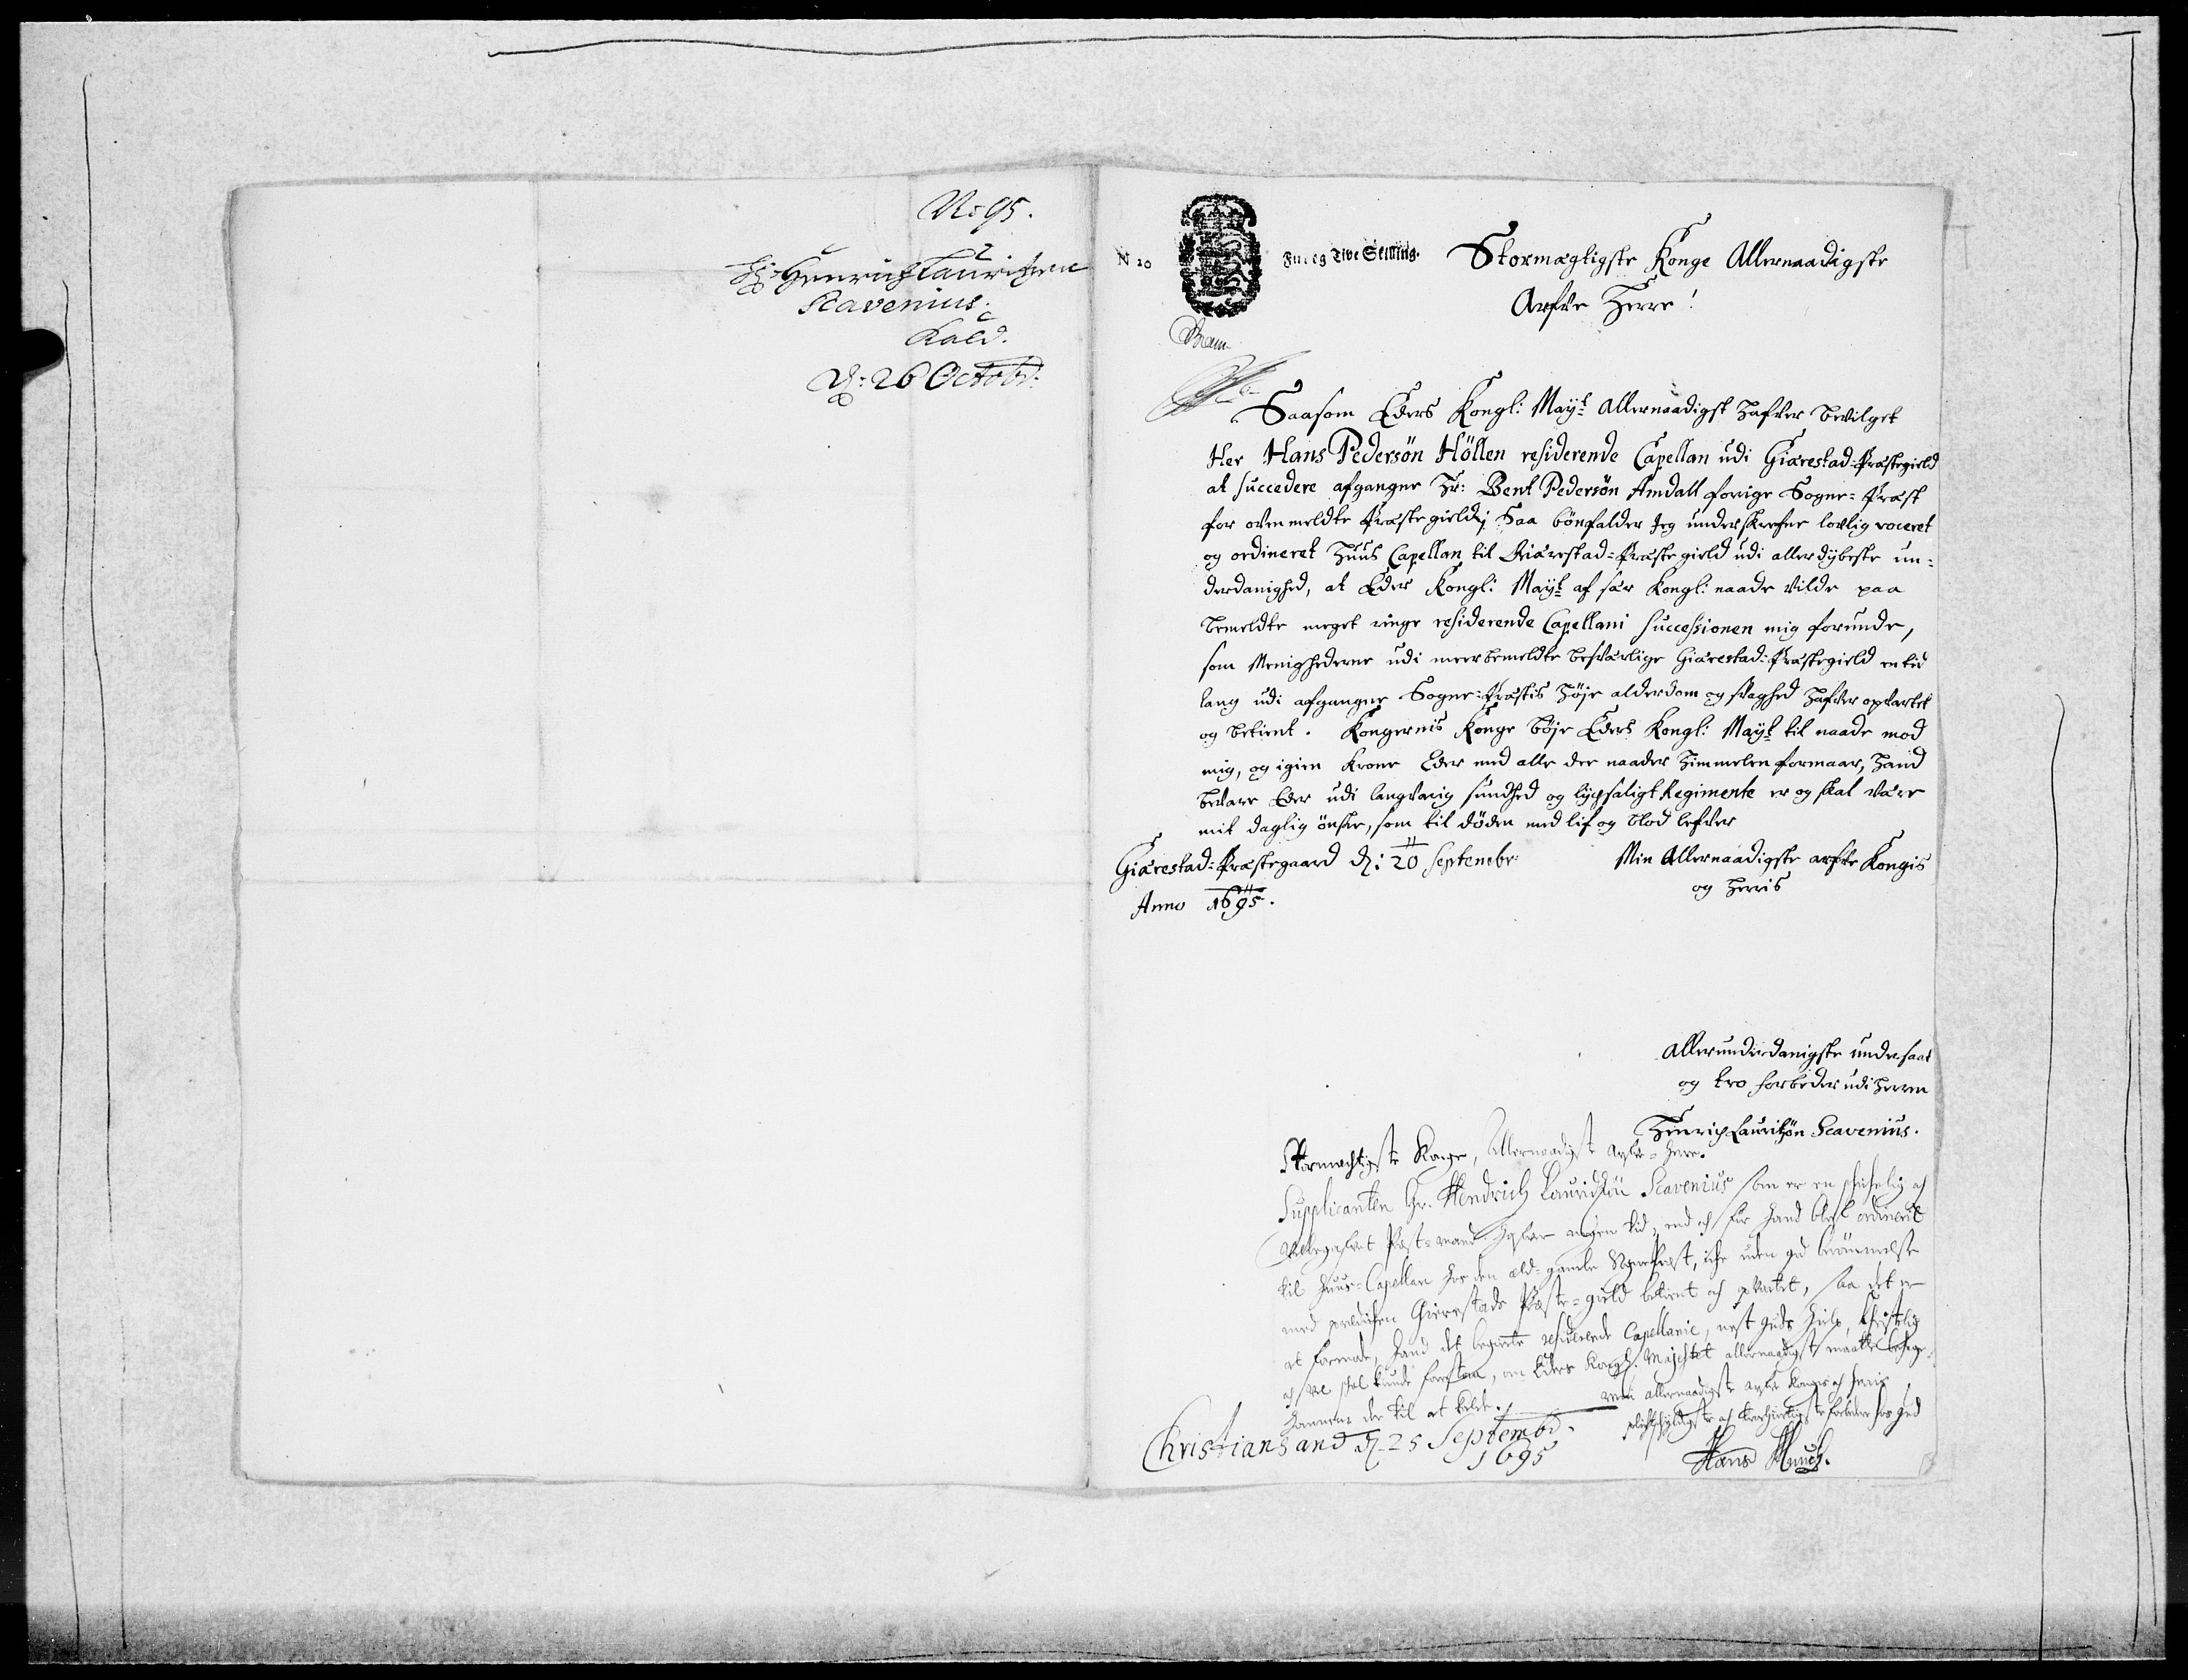 No 95.
Hr: Henrich Lauritzen
Scavenius.
Kald.
D: 26 Octobr:
N 20
Fire og Tive Skilling.
Stormægtigste Konge Allernaadigste
Arfve Herre!
Saasom Eders Kongl: Mayt: Allernaadigst hafver bevilget
Her Hans Pedersön Höllen residerende Capellan udi Giærestad-Præstegield
at succedere afgangne Hr: Bent Pedersön Amdall forige Sogne-Præst
for ovenmeldte Præstegield; Saa bönfalder Jeg underskrefne lovlig voceret
og ordineret Huus Capellan til Giærestad-Præstegield udi allerdÿbeste un-
derdanighed, at Eder Kongl: Mayt: af sær Kongl: naade vilde paa
bemeldte meget ringe residerende Capellani Successionen mig forunde,
som Menighederne udi meerbemeldte besværlige Giærestad-Præstegield en tid
lang udi afgangne Sogne-Præstis höje alderdom og svaghed hafver opvartet
og betient. Kongernis Konge böje Eders Kongl: Mayt: til naade mod
mig, og igien krone Eder med alle de naader himmelen formaar, Hand
bevare Eder udi langvarig sundhed og lÿcksaligt Regimente er og skal være
mit daglig önske, som til döden med lif og blod lefver
Giærestad-Præstegaard D: 20 Septembr:
Anno 1695.
Min Allernaadigste arfve Kongis
og Herris
Allerunderdanigste undersaat
og tro forbeder udi Herren
Henrich Lauritzön Scavenius.
Stormechtigste Konge, Allernaadigst Arfve-Herre.
Supplicanten Hr. Hendrich Lauridsön Scavenius som er en skichelig og
velbegafvet Præst-mand hafver nogen tid, end og før hand blef ordinerit
til Huus-Capellan hos den old-gamle Sognepræst, icke uden god berömmelse
med prædichen Gierrestads Præste-gield betient og opvartet, saa det er
at formode, hand det begierte residerende Capellanie, nest Guds hielp, Christelig
og vel skal kunde forestaa, om Eders Kongl. Majestet allernaadigst maatte behage
hannem der til at kalde.
Christiansand D. 25 Septembr.
1695
Min allernaadigste arfve Konges og Herris
plichtskyldigste og troehiertigste forbeder hos Gud
Hans Munch.